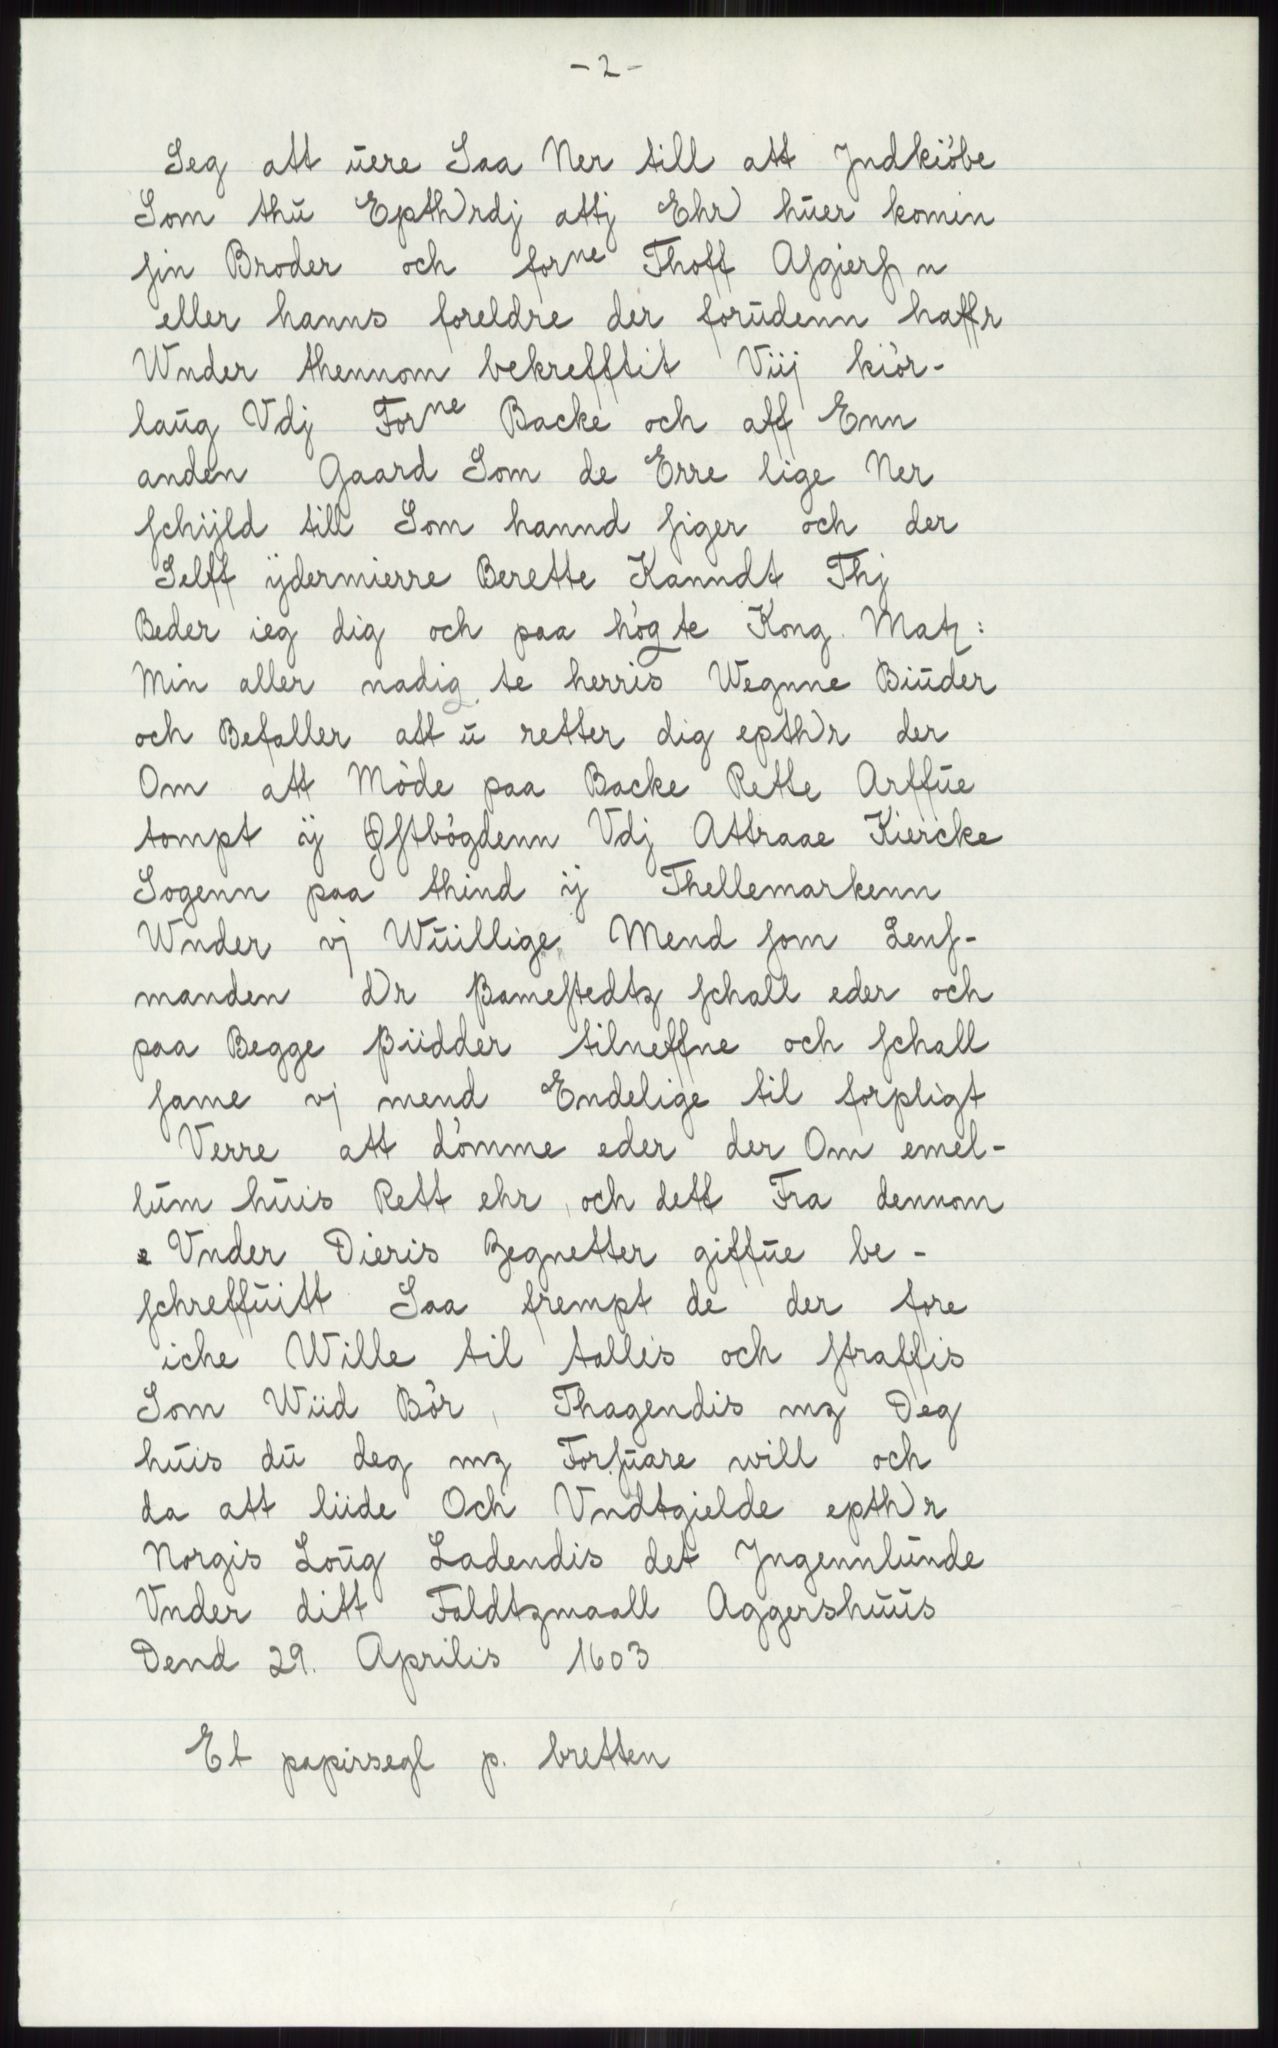 - 2 -
Seg att ūere Saa Ner till att Jndkiöbe
Som thū Epthrdj attj Ehr hūer komin
sin Broder och forne Thoff Asgiers n
eller hanns foreldre der forūdenn haffr
Wnder thennom bekrefftit Viij kiör-
laūg Vdj Forne Backe och aff Enn
anden Gaard Som de Erre lige Ner
schÿld till Som hannd siger och der
Selff ÿdermierre Berette Kanndt Thj
Beder ieg dig och paa högte Kong. Matz:
Min aller nadigte herris Wegnne Biūder
och Befaller att ū retter dig epthr der
Om att Möde paa Backe Rette Arffūe
tompt ÿ Østbögdenn Vdj Attraae Kiercke
Sogenn paa thind ÿ Thellemarkenn
Wnder vj Wūillige Mend som Lens-
manden dr Bamestedtz schall eder och
paa Begge Büdder tilneffne och schall
same vj mend Endelige til forpligt
Verre att dömme eder der Om emel-
lūm hūis Rett ehr, och dett Fra dennom
Vnder Dieris Zegnetter giffūe be-
schreffūitt Saa frempt de der fore
iche Wille til tallis och straffis
Som Wiid Bör, Thagendis mz Deg
hūis dū deg mz Forsūare will och
da att liide Och Vndtgielde epthr
Norgis Loūg Ladendis det Jngennlūnde
Vnder ditt Faldtzmaall Aggershūūs
Dend 29. Aprilis 1603
Et papirsegl p. bretten